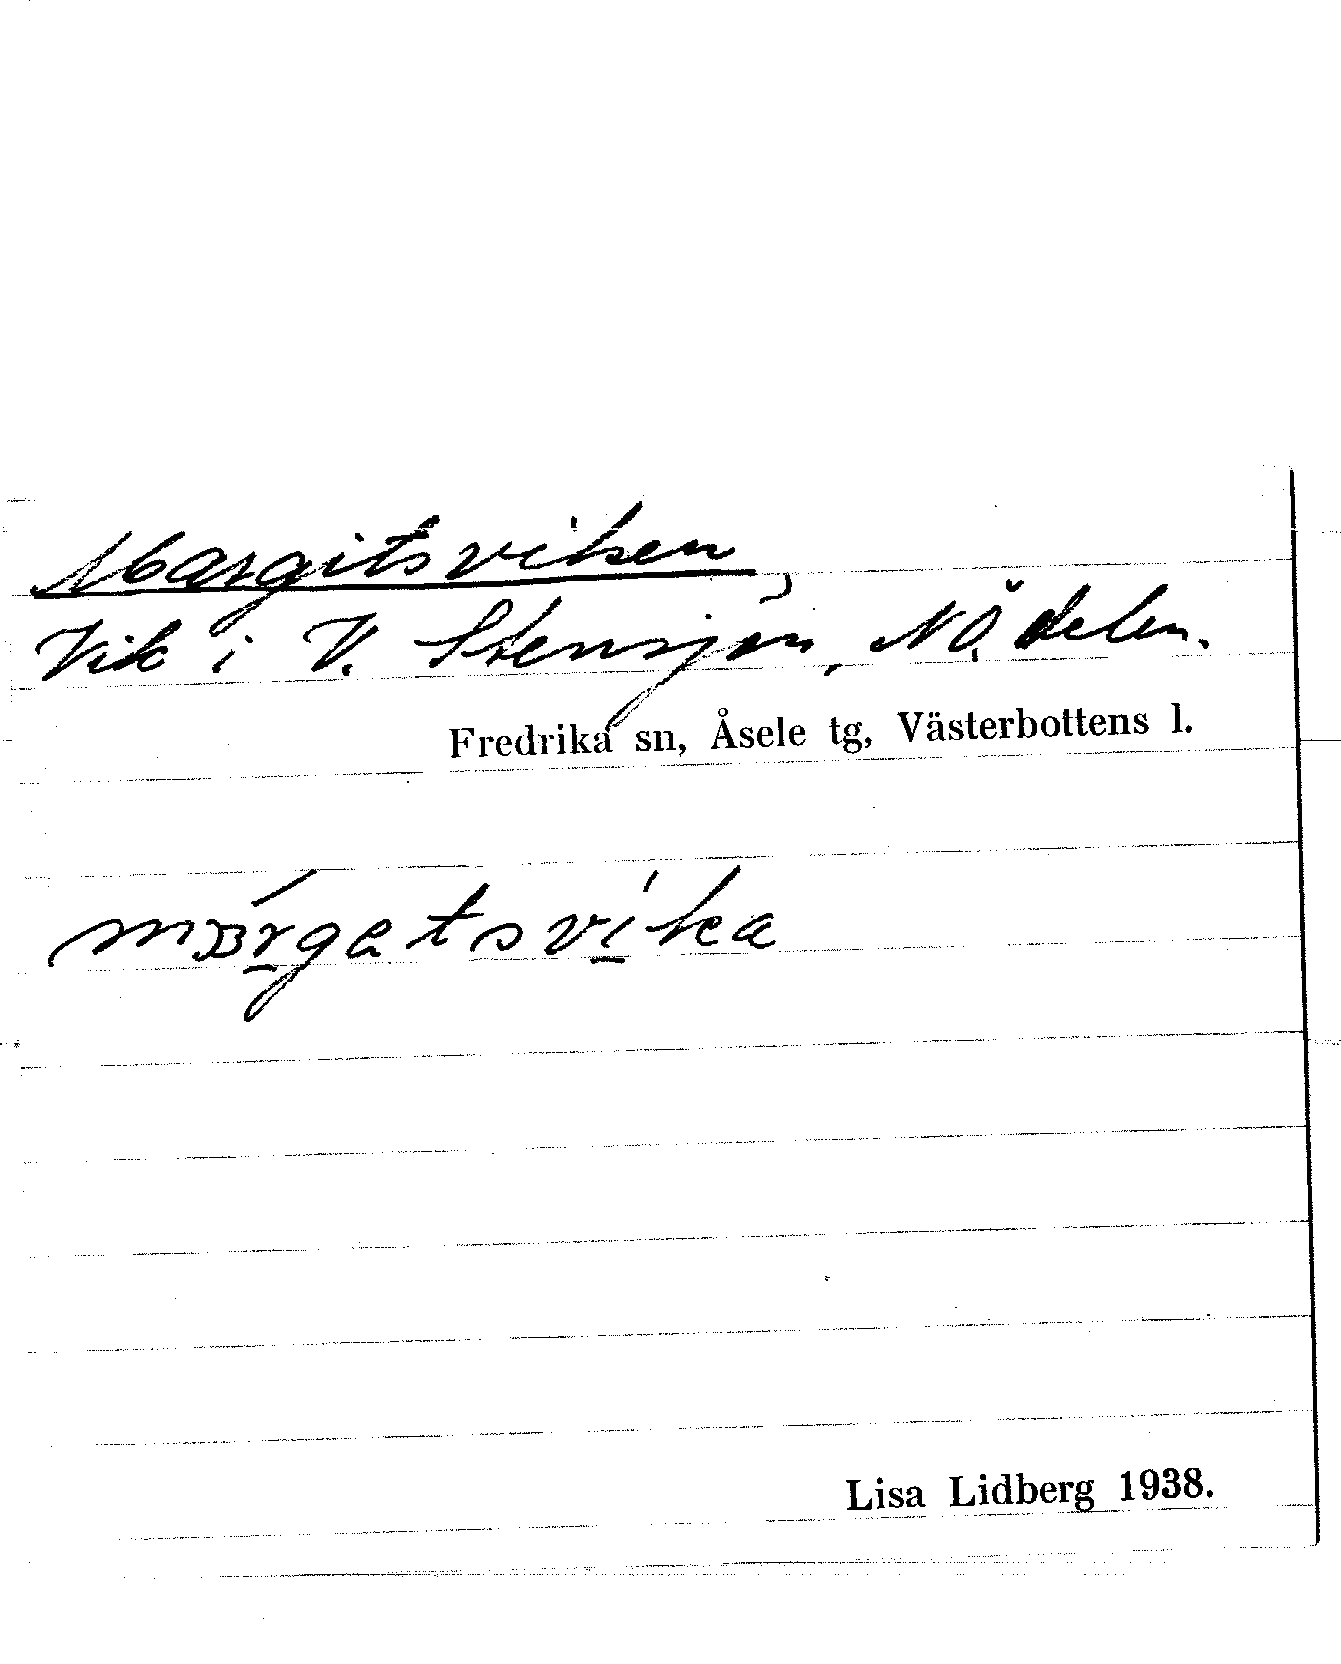 Margitsviken,
Vik i V. Stensjön, NÖ. delen.
Fredrika sn, Åsele tg, Västerbottens l.
Lisa Lidberg 1938.